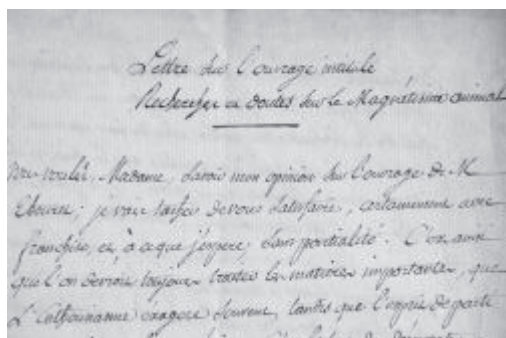 Lettre sur l'ouvrage intitulé
Recherches et doutes sur le Magnétisme animal
vous voulés, Madame, savoir mon opinion sur l'ouvrage de M.
Thouret; je vais tacher de vous satisfaire, certainement avec
franchise, et, à ce que j'espere, sans partialité. C'est ainsi
que l'on devroit toujours traiter les matieres importantes, que
L'enthousiasme exagere souvent, tandis que l'esprit de parti